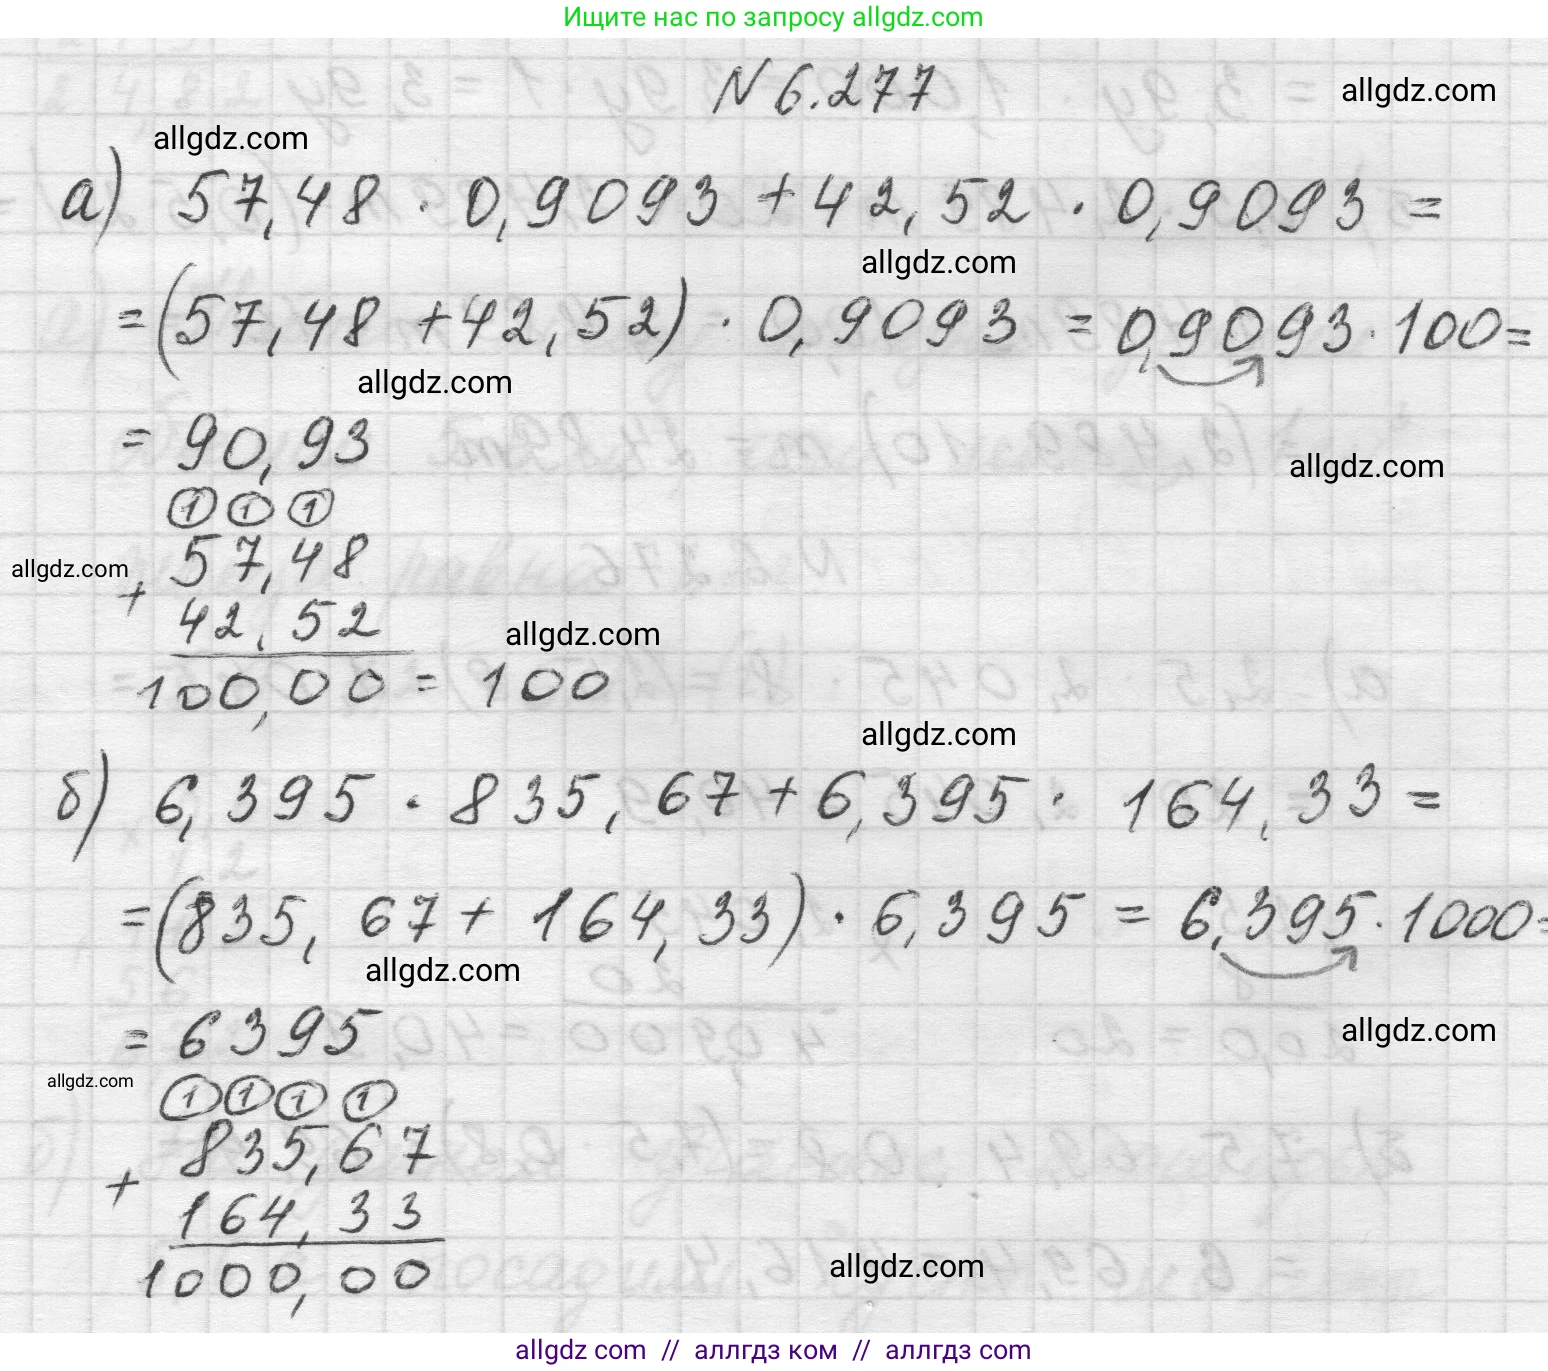 Ищите нас по запросу allgdz.com
N 6.277
allgdz.com
allgdz.com
а) 57,48 · 0,9093 + 42,52 · 0,9093 =
allgdz.com
= (57,48 + 42,52) · 0,9093 = 0,9093 · 100 =
allgdz.com
= 90,93
allgdz.com
1 1 1
57,48
allgdz.com
+
42,52
allgdz.com
100,00 = 100
allgdz.com
б) 6,395 · 835,67 + 6,395 · 164,33 =
= (835,67 + 164,33) · 6,395 = 6,395 · 1000 =
allgdz.com
= 6395
allgdz.com
allgdz.com
1 1 1 1
835,67
+
164,33
allgdz.com
1000,00
allgdz com // аллгдз ком // аллгдз com